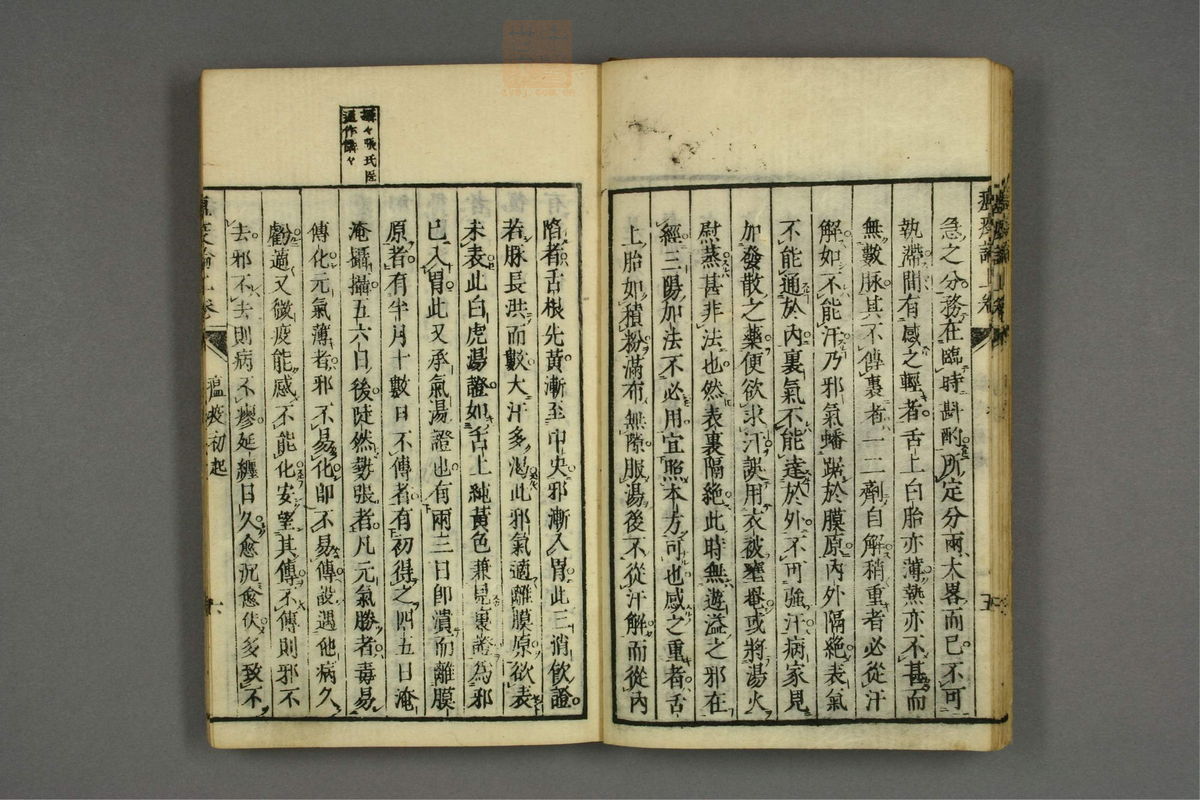 急之分務在臨時斟酌所定分兩大畧而已不可
執滯間有感之輕者舌上白胎亦薄熱亦不甚而
無數脉其不傳裏者一二劑自解稍重者必從汗
解如不能汗乃邪氣蟠踞於膜原內外隔絶表氣
不能通於內裏氣不能達於外不可強汗病家見
加發散之藥便欲求汗誤用衣被壅遏或將湯火
慰蒸甚非法也然表裏隔絶此時無遊溢之邪在
經三陽加法不必用宜照本方可也感之重者舌
上胎如積粉滿布無隙服湯後不從汗解而從內
攝々張氏医
通作懾々
陷者舌根先黃漸至中央邪漸入胃此三消飲證
若脉長洪而數大汗多渴此邪氣適離膜原欲表
未表此白虎湯證如舌上純黃色兼見裏證為邪
已入胃此又承氣湯證也有兩三日即潰而離膜
原者有半月十數日不傳者有初得之四五日淹
淹攝攝五六日後陡然勢張者凡元氣勝者毒易
傳化元氣薄者邪不易化即不易傳設遇他病久
虧適又微疫能感不能化安望其傳不傳則邪不
去邪不去則病不瘳延纏日久愈沉愈伏多致不
瘟疫論上卷
瘟疫初起